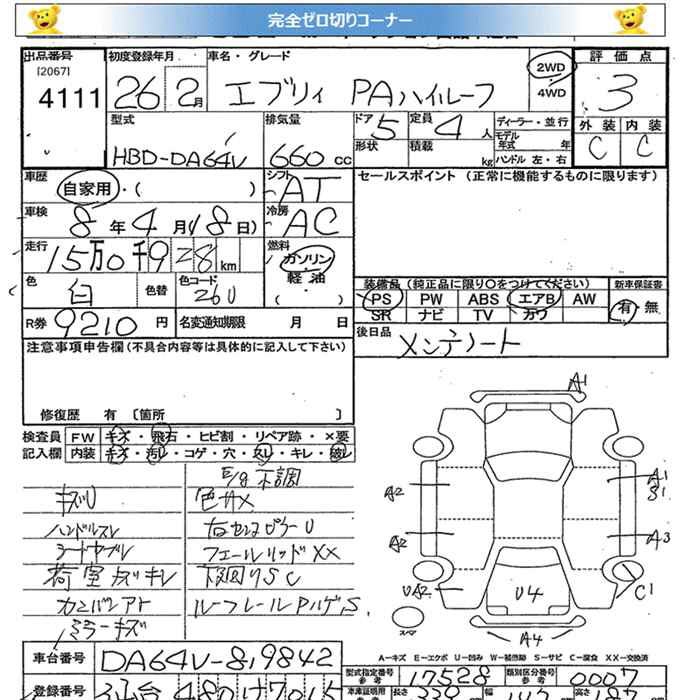 完全ゼロ切りコーナー
出品番号 初度登録年月 車名・グレード 2WD 評価点
[2067]
4111 26 2月 エブリィ PAハイルーフ 4WD 3
型式 排気量 ドア 5 定員 4 人 ディーラー・並行 外装 内装
HBD-DA64V 660 cc 形状 積載 kg モデル年式 年 C C
ハンドル 左・右
車歴 自家用・( ) シフト AT セールスポイント (正常に機能するものに限ります)
車検 8年4月18日) 冷房 AC
走行 15万0千928km 燃料 ガソリン
軽油
( )
色 白 色替 色コード 26U 装備品(純正品に限り○をつけてください) 新車保証書
PS PW ABS エアB AW 有・無
SR ナビ TV カワ
R券 9210円 名変通知期限 月 日 後日品 メンテノート
注意事項申告欄(不具合内容等は具体的に記入して下さい)
修復歴 有 〔箇所 〕
検査員 FW キズ・飛石・ヒビ割・リペア跡・×要
記入欄 内装 キズ・汚レ・コゲ・穴・スレ・キレ・破レ
E/g 不調
キズU 色サメ
ハンドルスレ
フューエルリッドXX
荷室 キズ・キレ 下回りSC
カンバンアト ルーフレールPハゲ,S
ミラーキズ
A1
A2 A1
S1
A2 A3
UA2 U4 C1
スペア A4
A-キズ E-エクボ U-凹み W-補修跡 S-サビ C-腐食 XX-交換済
車台番号 DA64V-819842 型式指定番号 17528 類別区分番号 0007
参考 参考
登録番号 仙台 480 車庫証明用 長さ 339 幅 147